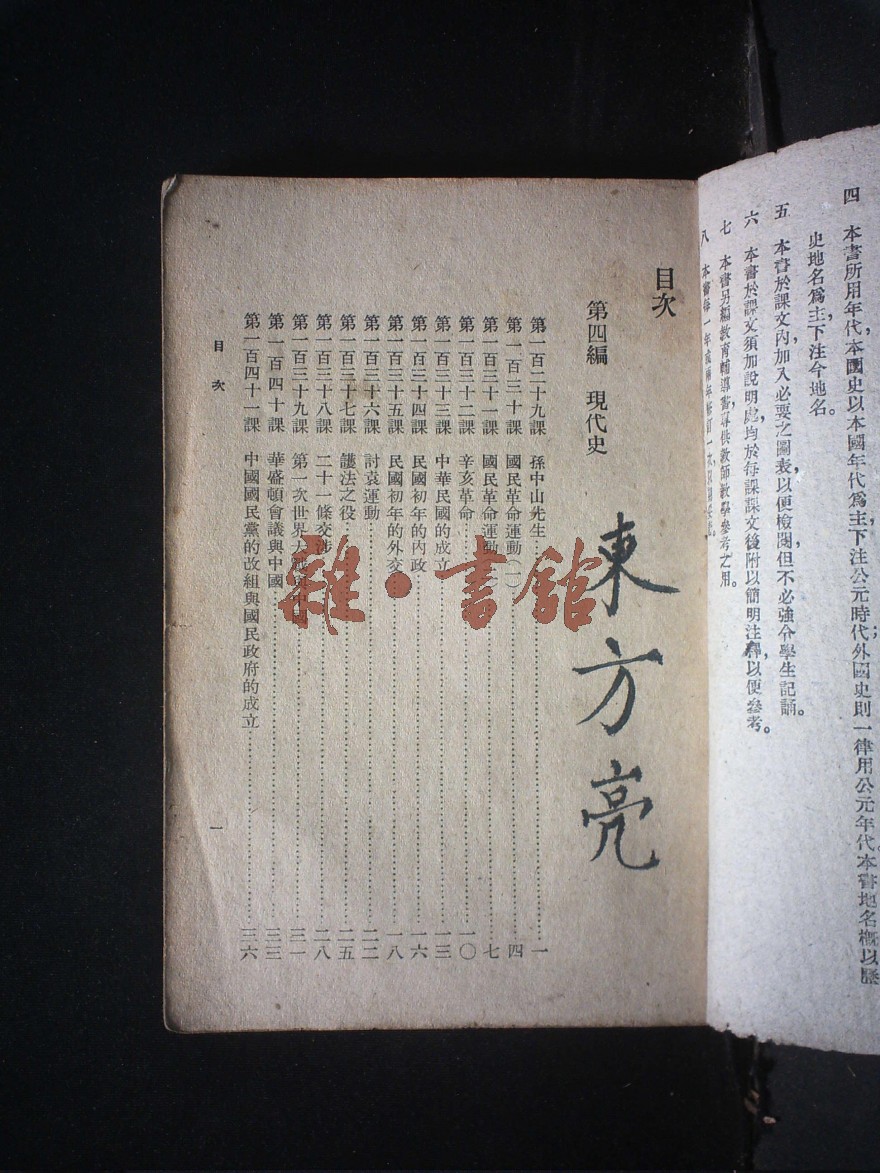 四　本書所用年代,本國史以本國年代爲主,下注公元時代;外國史則一律用公元年代。本書地名概以歷
史地名爲主,下注今地名。
五　本書於課文內加入必要之圖表,以便檢閱,但不必強令學生記誦。
六　本書於課文須加說明處,均於每課課文後附以簡明注釋,以便參考。
七　本書另編教育輔導書,專供教師教學參考之用。
八　本書每一年或兩年修訂一次
目次
第四編　現代史
第一百二十九課　孫中山先生……一
第一百三十課　國民革命運動(一)……四
第一百三十一課　國民革命運動……七
第一百三十二課　辛亥革命……一〇
第一百三十三課　中華民國的成立……一三
第一百三十四課　民國初年的內政……一六
第一百三十五課　民國初年的外交……一八
第一百三十六課　討袁運動……二二
第一百三十七課　護法之役……二五
第一百三十八課　二十一條交涉……二八
第一百三十九課　第一次世界大戰與中國……三一
第一百四十課　華盛頓會議與中國……三三
第一百四十一課　中國國民黨的改組與國民政府的成立……三六
目次
一
東方亮
雜·書館